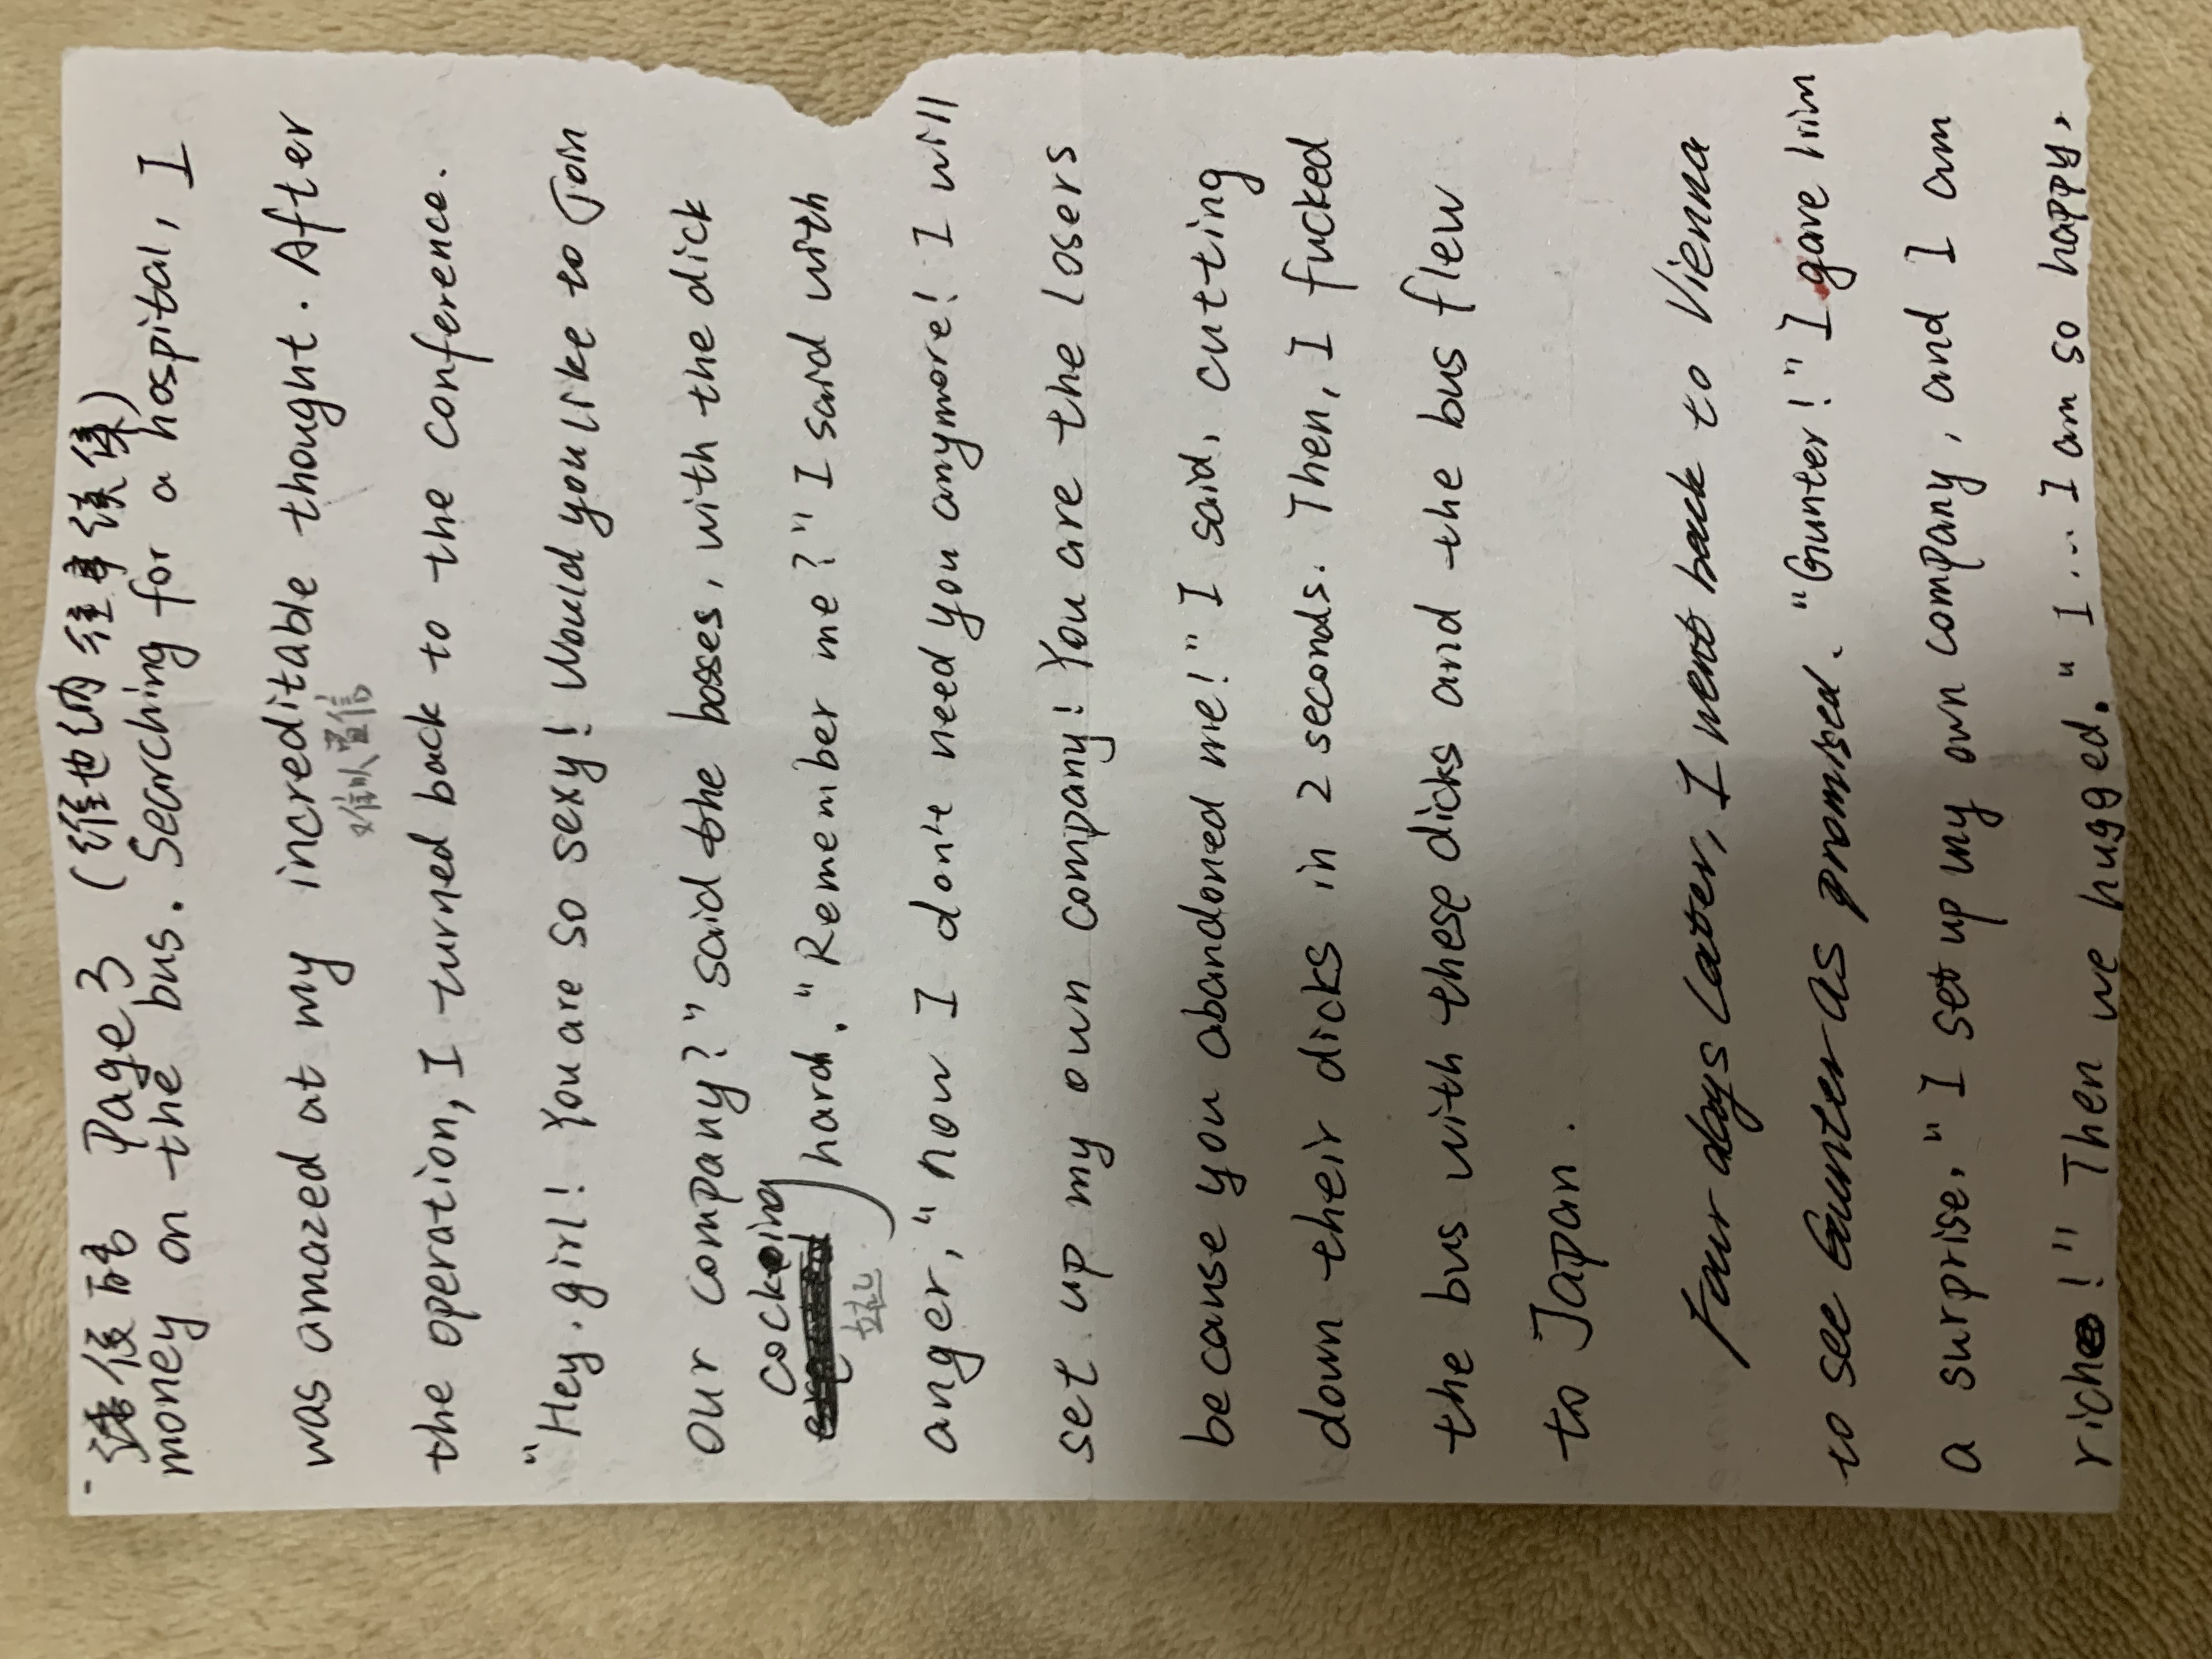 Page 3 (维也纳往事续集)
money on the bus. Searching for a hospital, I
was amazed at my increditable thought. After
难以置信
the operation, I turned back to the conference.
"Hey, girl! You are so sexy! Would you like to Join
our company?" said the bosses, with the dick
cocking
hard. "Remember me?" I said with
anger, "now I don't need you anymore! I will
set up my own company! You are the losers
because you abandoned me!" I said, cutting
down their dicks in 2 seconds. Then, I fucked
the bus with these dicks and the bus flew
to Japan.
Four days later, I went back to Vienna
to see Gunter as promised. "Gunter!" I gave him
a surprise. "I set up my own company, and I am
rich!" Then we hugged. "I... I am so happy,